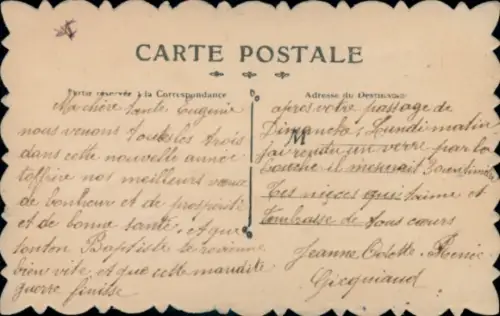 CARTE POSTALE
Partie réservée à la Correspondance
Ma chère tante Eugénie
nous venons toutes les trois
dans cette nouvelle année
t'offrire nos meilleurs vœux
de bonheur et de prospérité
et de bonne santé, et que
tonton Baptiste te revienne
bien vite, et que cette maudite
guerre finisse
Adresse du Destinataire
M
après votre passage de
Dimanche, Lundi matin
j'ai rendu un verre par la
bouche il mesurait
Tes nièces qui t'aime et
t'embrasse de tous cœurs
Jeanne Odette Renée
Gicquiaud